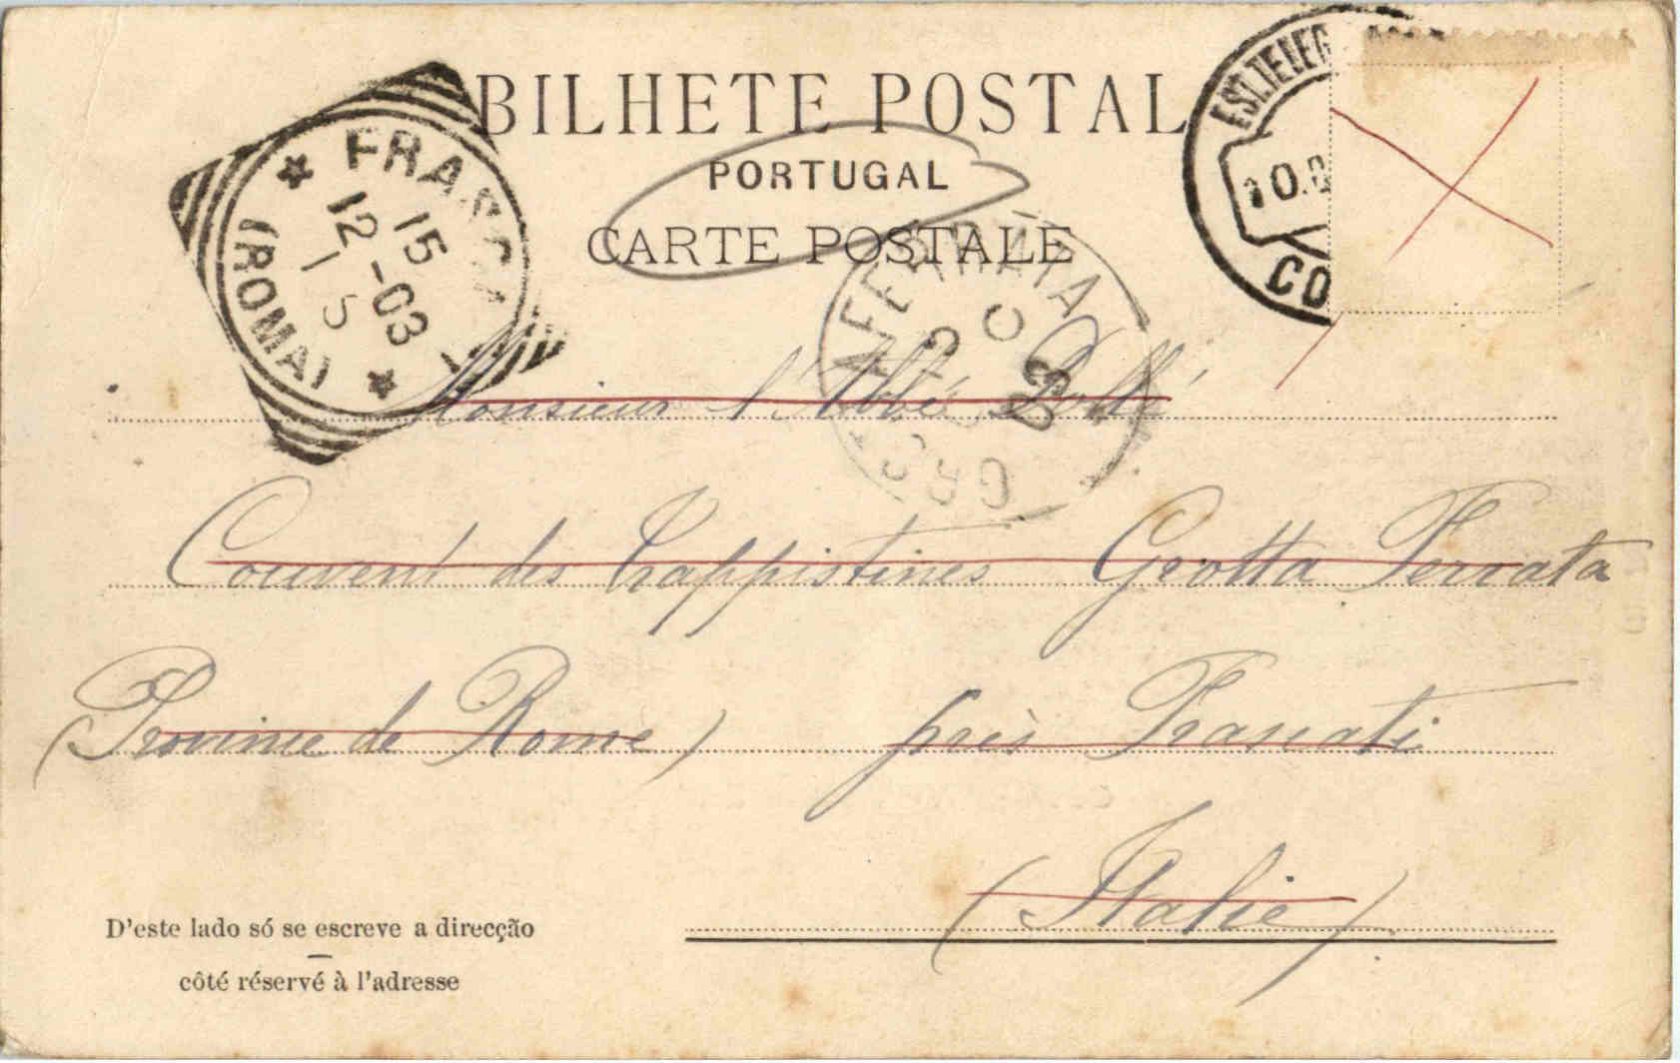 BILHETE POSTAL
PORTUGAL
CARTE POSTALE
EST.TELEG
10.
CO
FRASCATI
15
12-03
1 S
(ROMA)
AFERRATA
03
GRO
Monsieur l'Abbé
Couvent des Trappistines Grotta Ferrata
(Province de Rome) près Frascati
(Italie)
D'este lado só se escreve a direcção
côté réservé à l'adresse